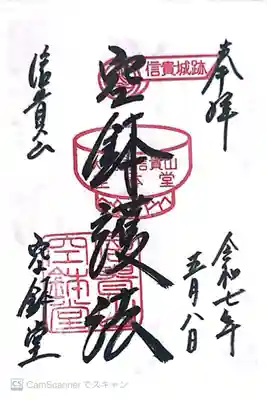 奉拝
令和七年
五月八日
信貴城跡
空鉢護法
信貴山
空鉢堂
信貴山
空鉢堂
CS CamScanner でスキャン